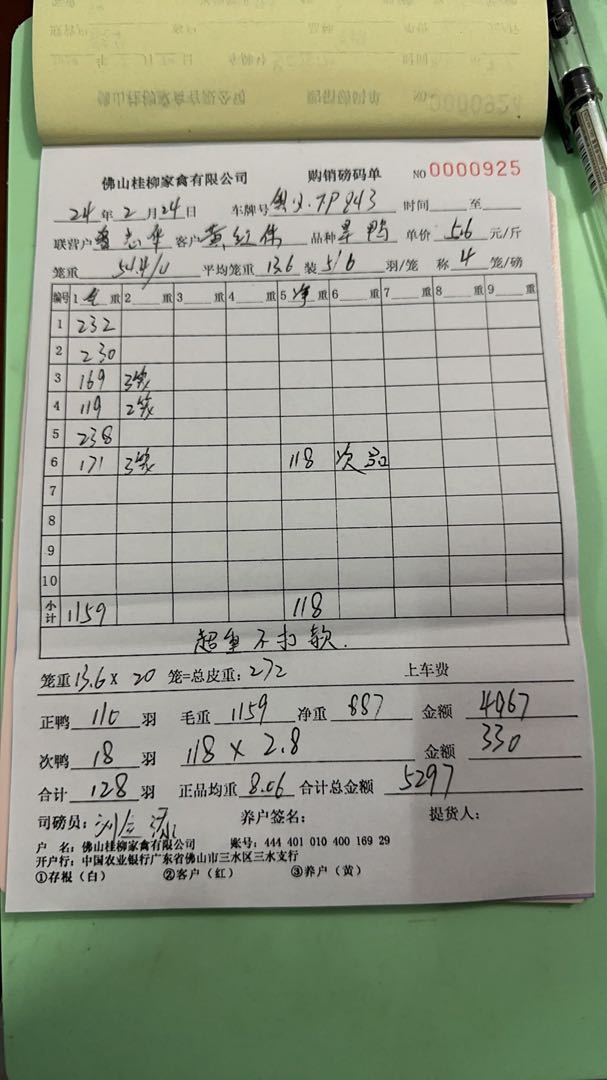 佛山桂柳家禽有限公司 购销磅码单 NO 0000925
24年2月24日 车牌号 7P843 时间 至
联营户 曾志华 客户 黄红伟 品种 旱鸭 单价 5.6 元/斤
笼重 54.4/4 平均笼重 13.6 装 5/6 羽/笼 称 4 笼/磅
编号 1 毛 重 2 重 3 重 4 重 5 净 重 6 重 7 重 8 重 9 重
1 232
2 230
3 169 3笼
4 119 2笼
5 238
6 171 3笼 118 次品
7
8
9
10
小计 1159 118
超重不扣款.
笼重 13.6 × 20 笼=总皮重: 272 上车费
正鸭 110 羽 毛重 1159 净重 887 金额 4967
次鸭 18 羽 118 × 2.8 金额 330
合计 128 羽 正品均重 8.06 合计总金额 5297
司磅员: 养户签名: 提货人:
户 名: 佛山桂柳家禽有限公司 账号: 444 401 010 400 169 29
开户行: 中国农业银行广东省佛山市三水区三水支行
①存根(白) ②客户(红) ③养户(黄)